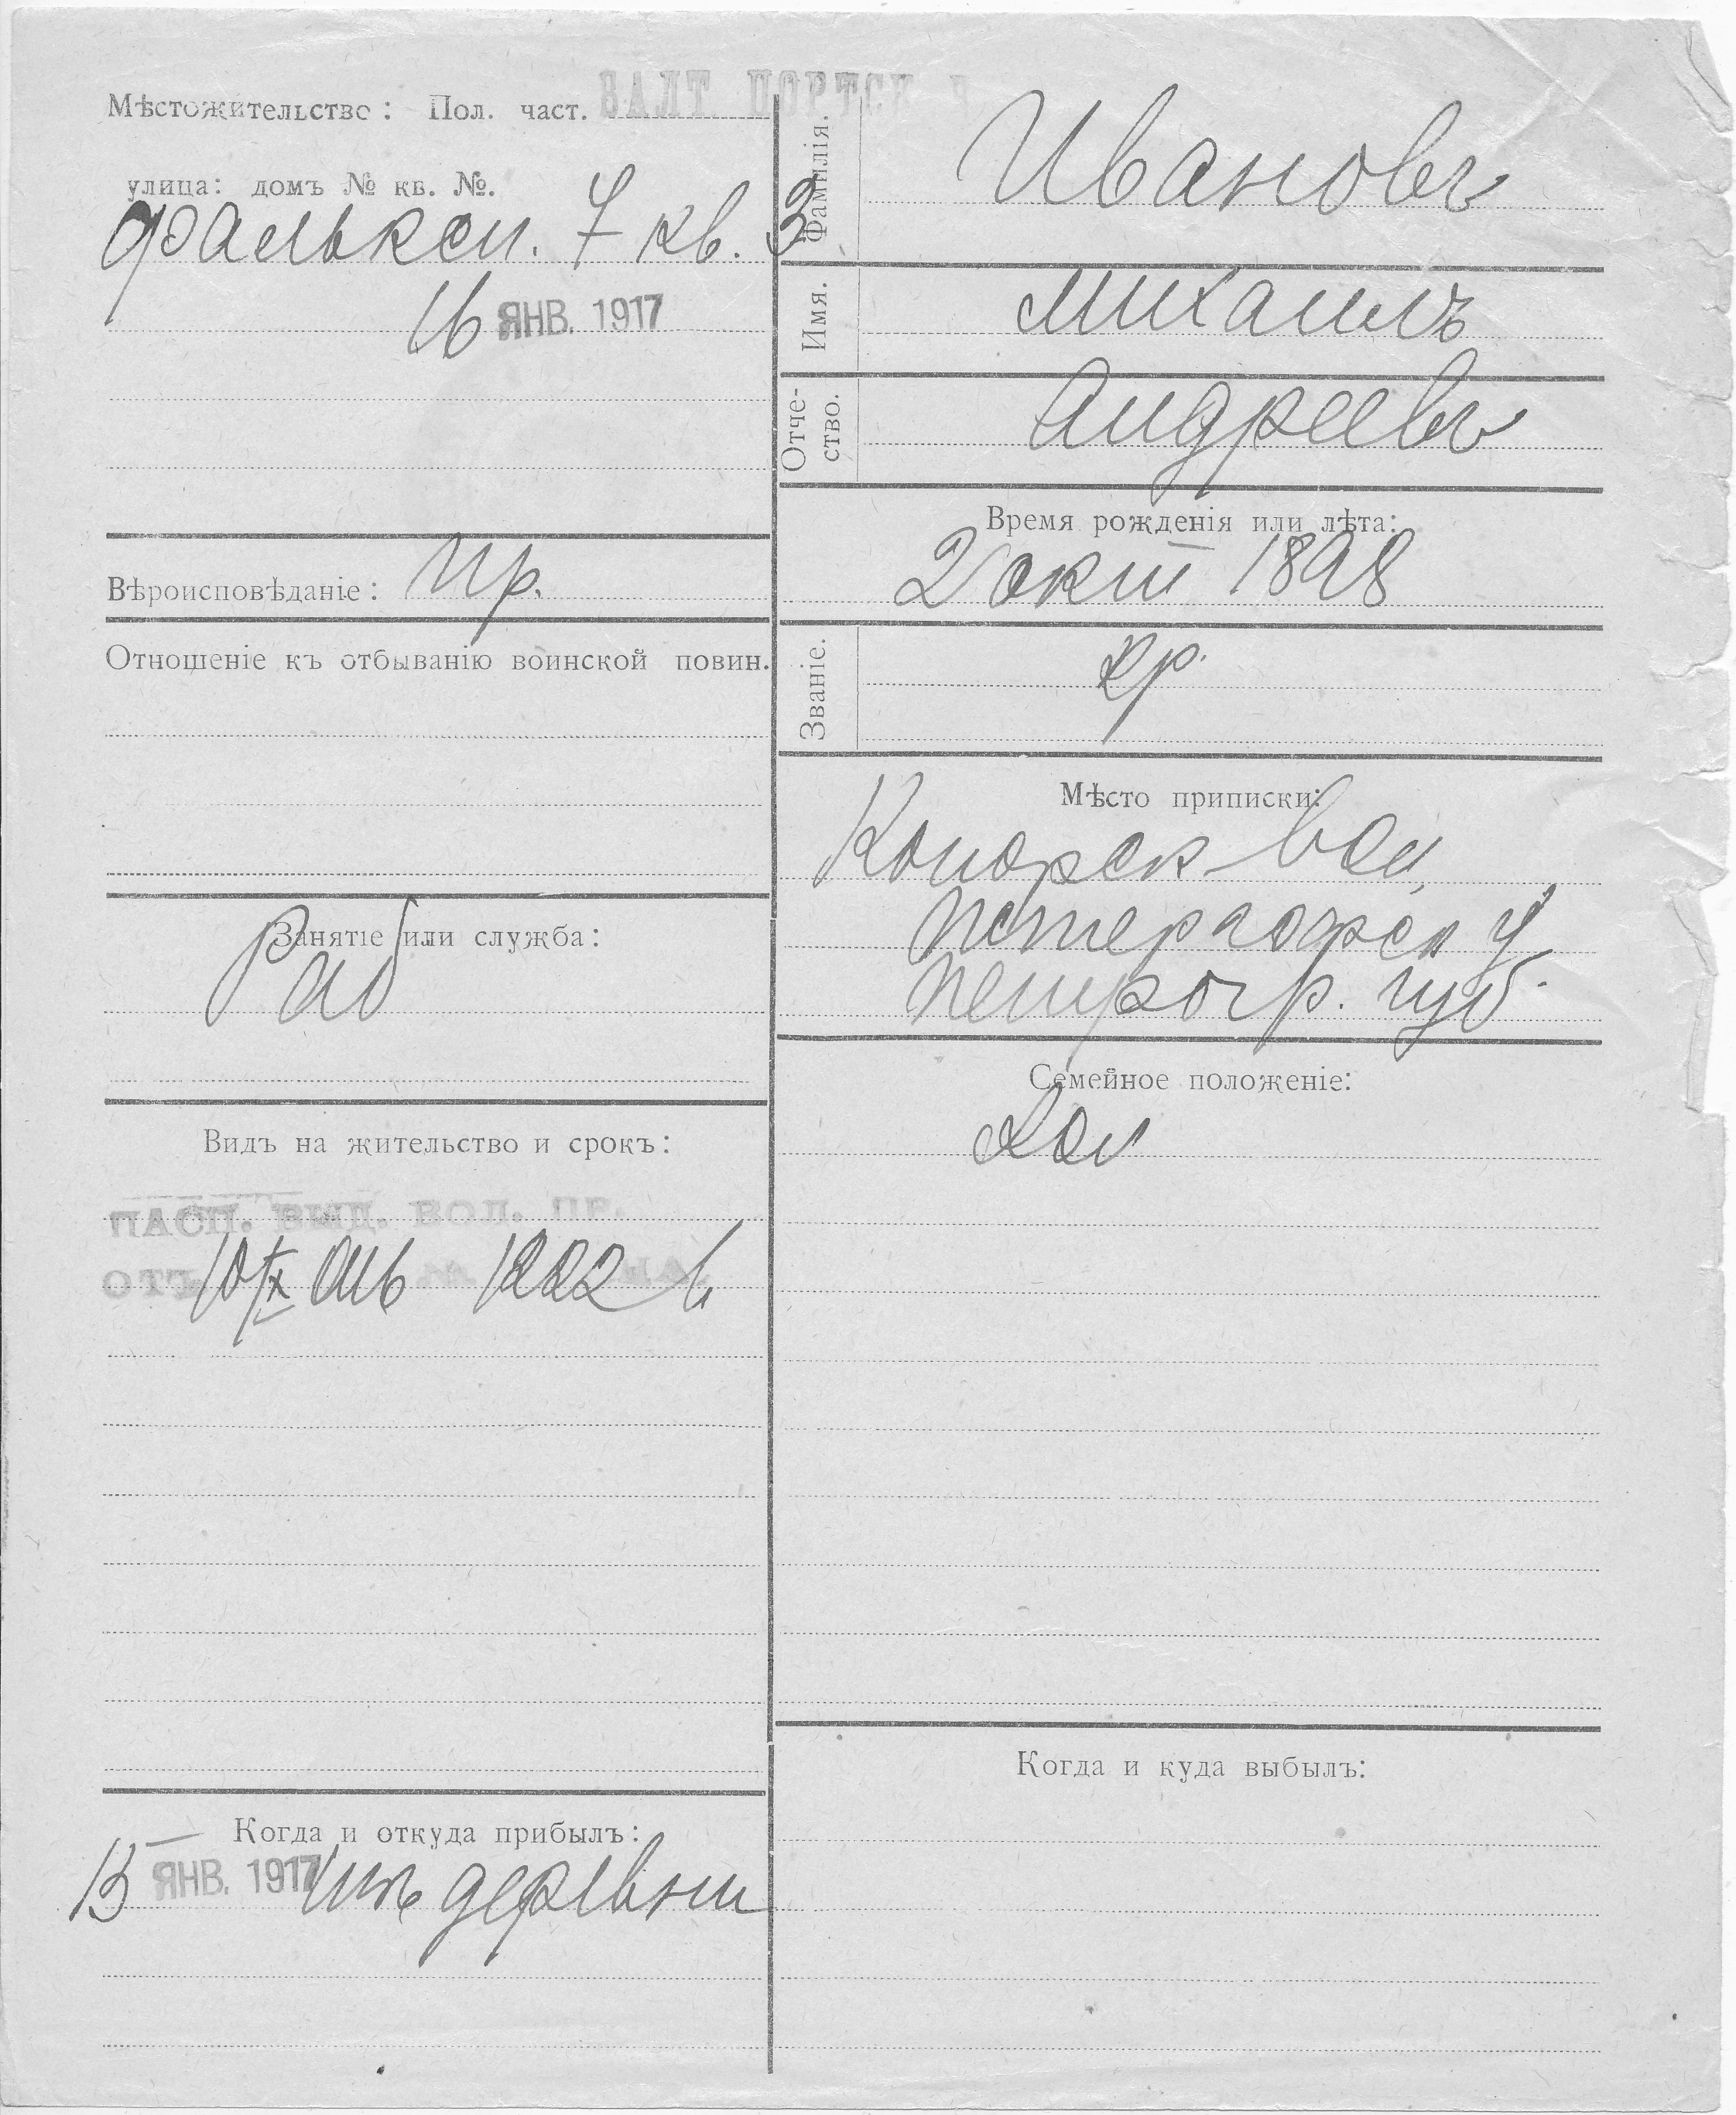 Мѣстожительство: Пол. част. БАЛТ. ПОРТСК. Ч
улица: домъ № кв. №.
Фальксп. 7 кв. 3
16 ЯНВ. 1917
Вѣроисповѣданіе: Пр.
Отношеніе къ отбыванію воинской повин.
Занятіе или служба:
Раб
Видъ на жительство и срокъ:
ПАСП. ВЫД. ВОЛ. ПР.
ОТЪ 10/IX 916 1222
Когда и откуда прибылъ:
13 ЯНВ. 1917 изъ деревни
Фамилія. Ивановъ
Имя. Михаилъ
Отче-
ство. Андреевъ
Время рожденія или лѣта:
2 окт 1898
Званіе. кр.
Мѣсто приписки:
Копорск вол,
Петергофск у.
Петрогр. губ.
Семейное положеніе:
Хол
Когда и куда выбылъ: